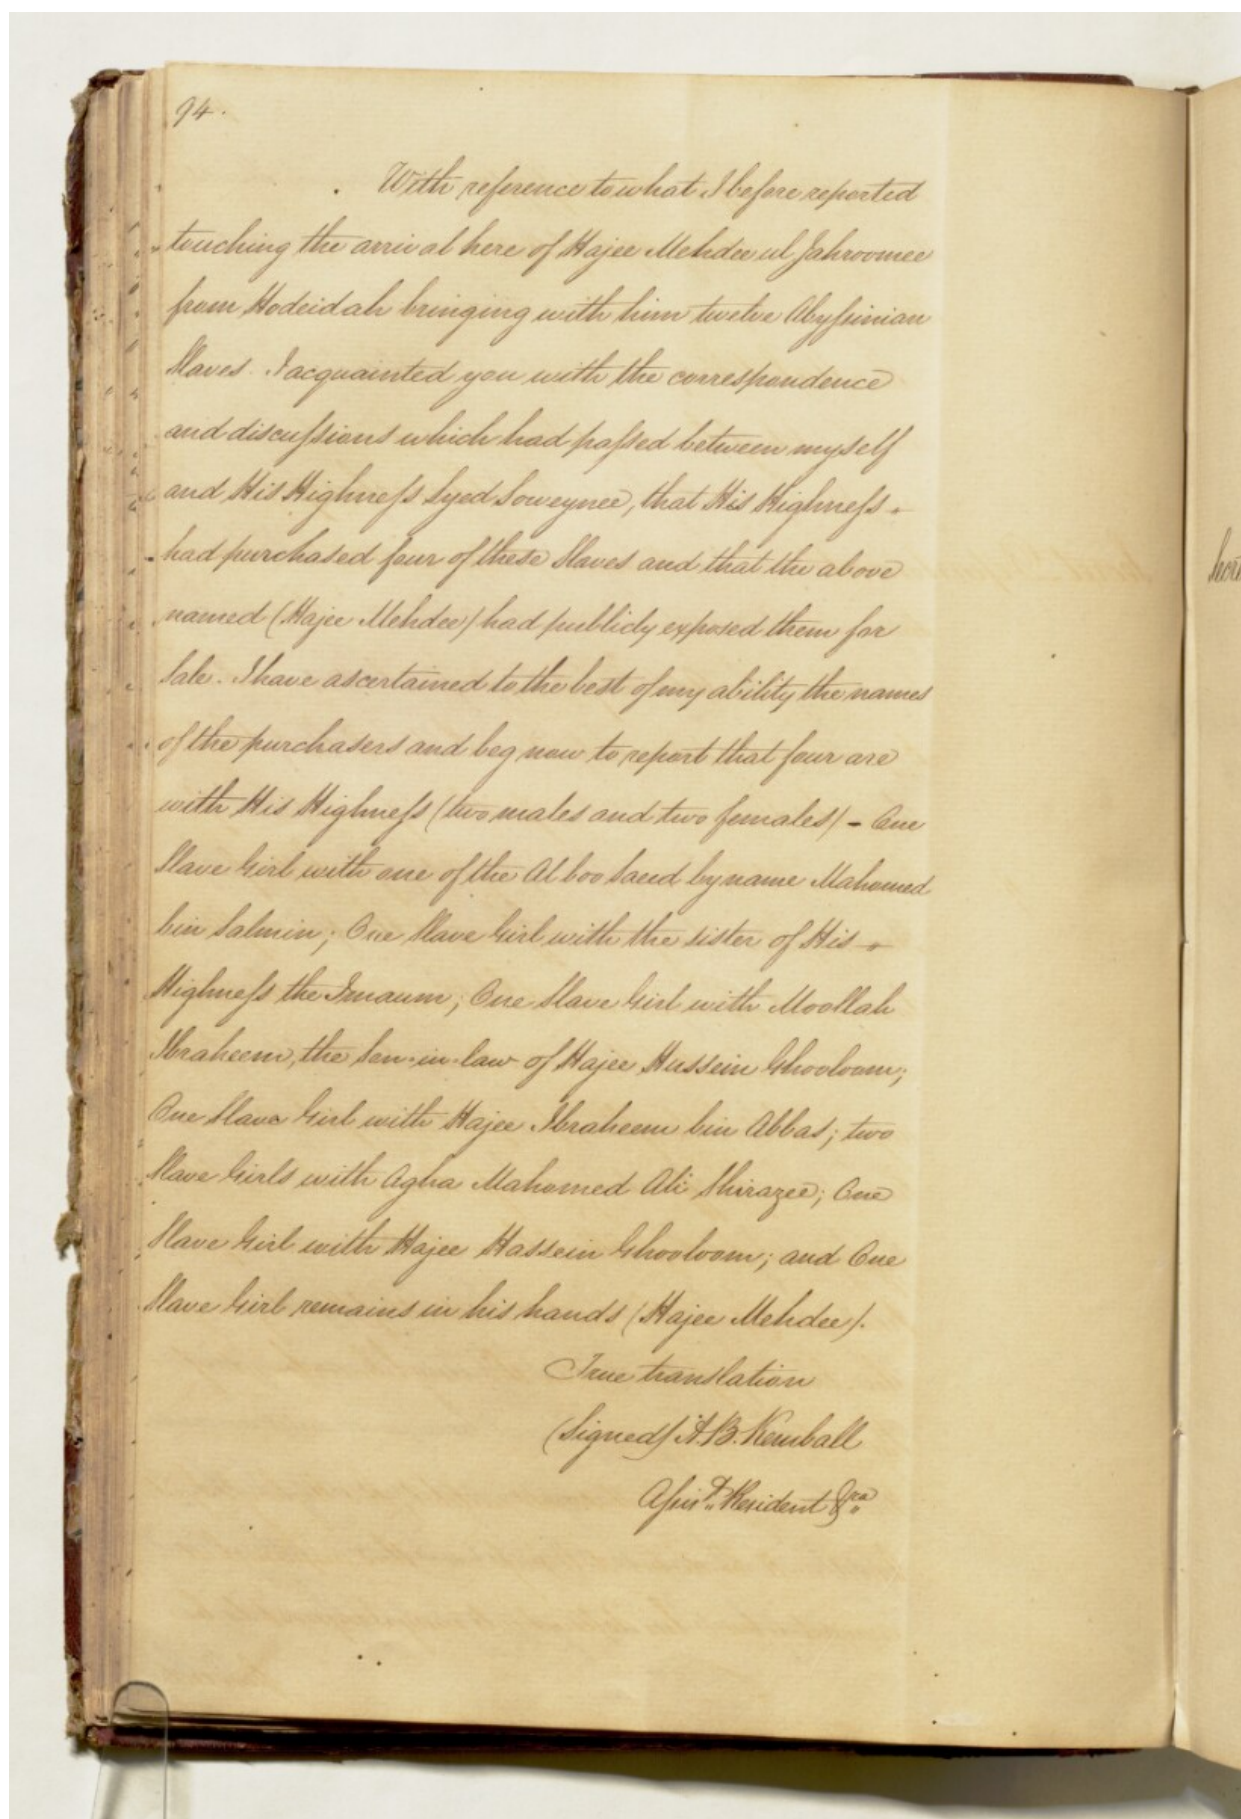 94.
With reference to what I before reported
touching the arrival here of Hajee Mehdee ul Jahroomee
from Hodeidah bringing with him twelve Abyſsinian
Slaves. I acquainted you with the correspondence
and discuſsions which had paſsed between myself
and His Highneſs Syed Soweynee, that His Highneſs
had purchased four of these Slaves and that the above
named (Hajee Mehdee) had publicly exposed them for
Sale. I have ascertained to the best of my ability the names
of the purchasers and beg now to report that four are
with His Highneſs (two males and two females) - One
Slave Girl with one of the Al boo Saeed by name Mahomed
bin Salmin; One Slave Girl with the sister of His
Highneſs the Imaum; One Slave Girl with Moollah
Ibraheem, the Son-in-law of Hajee Hussein Ghooloom;
One Slave Girl with Hajee Ibraheem bin Abbas; two
Slave Girls with Agha Mahomed Ali Shirazee; One
Slave Girl with Hajee Hassein Ghooloom; and One
Slave Girl remains in his hands (Hajee Mehdee).
True translation
(Signed) A. B. Kemball
Aſsist. Resident &ca